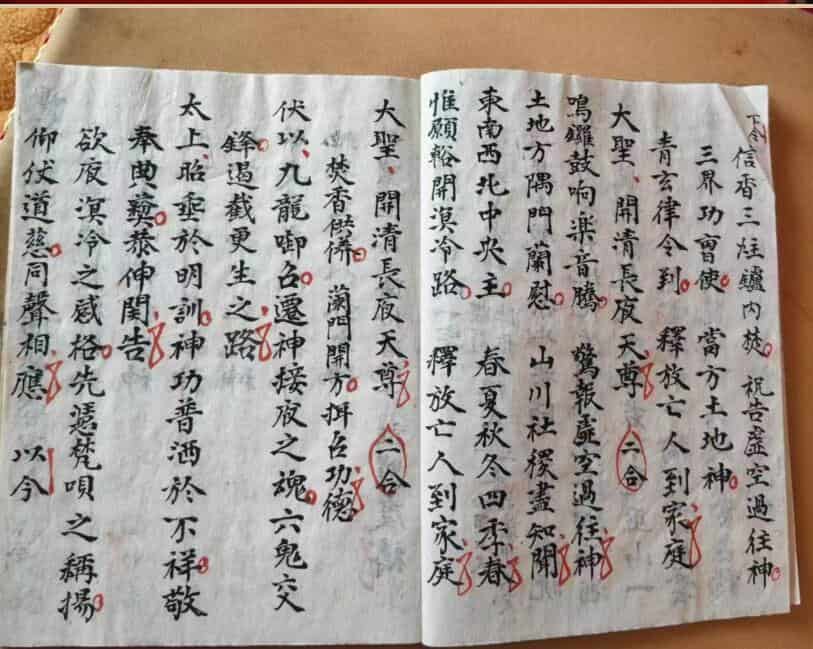 信香三炷鑪内焚 祝告虛空過往神
三界功曹使 當方土地神
青玄律令到 釋放亡人到家庭
大聖、開清長夜天尊 二合
鳴鑼鼓响楽音騰 驚報虛空過往神
土地方隅門蘭慰 山川社稷盡知聞
東南西北中央主 春夏秋冬四季春
惟願豁開溟冷路 釋放亡人到家庭
大聖、開清長夜天尊 二合
焚香供養 蘭門開方 召功德
伏以、九龍啣召遷神接夜之魂六鬼交
鋒遏截更生之路
太上、昭垂於明訓神功普洒於不祥敬
奉典彝恭伸関告
欲夜溟冷之感格先憑梵唄之稱揚
仰伏道慈同聲相應 以今